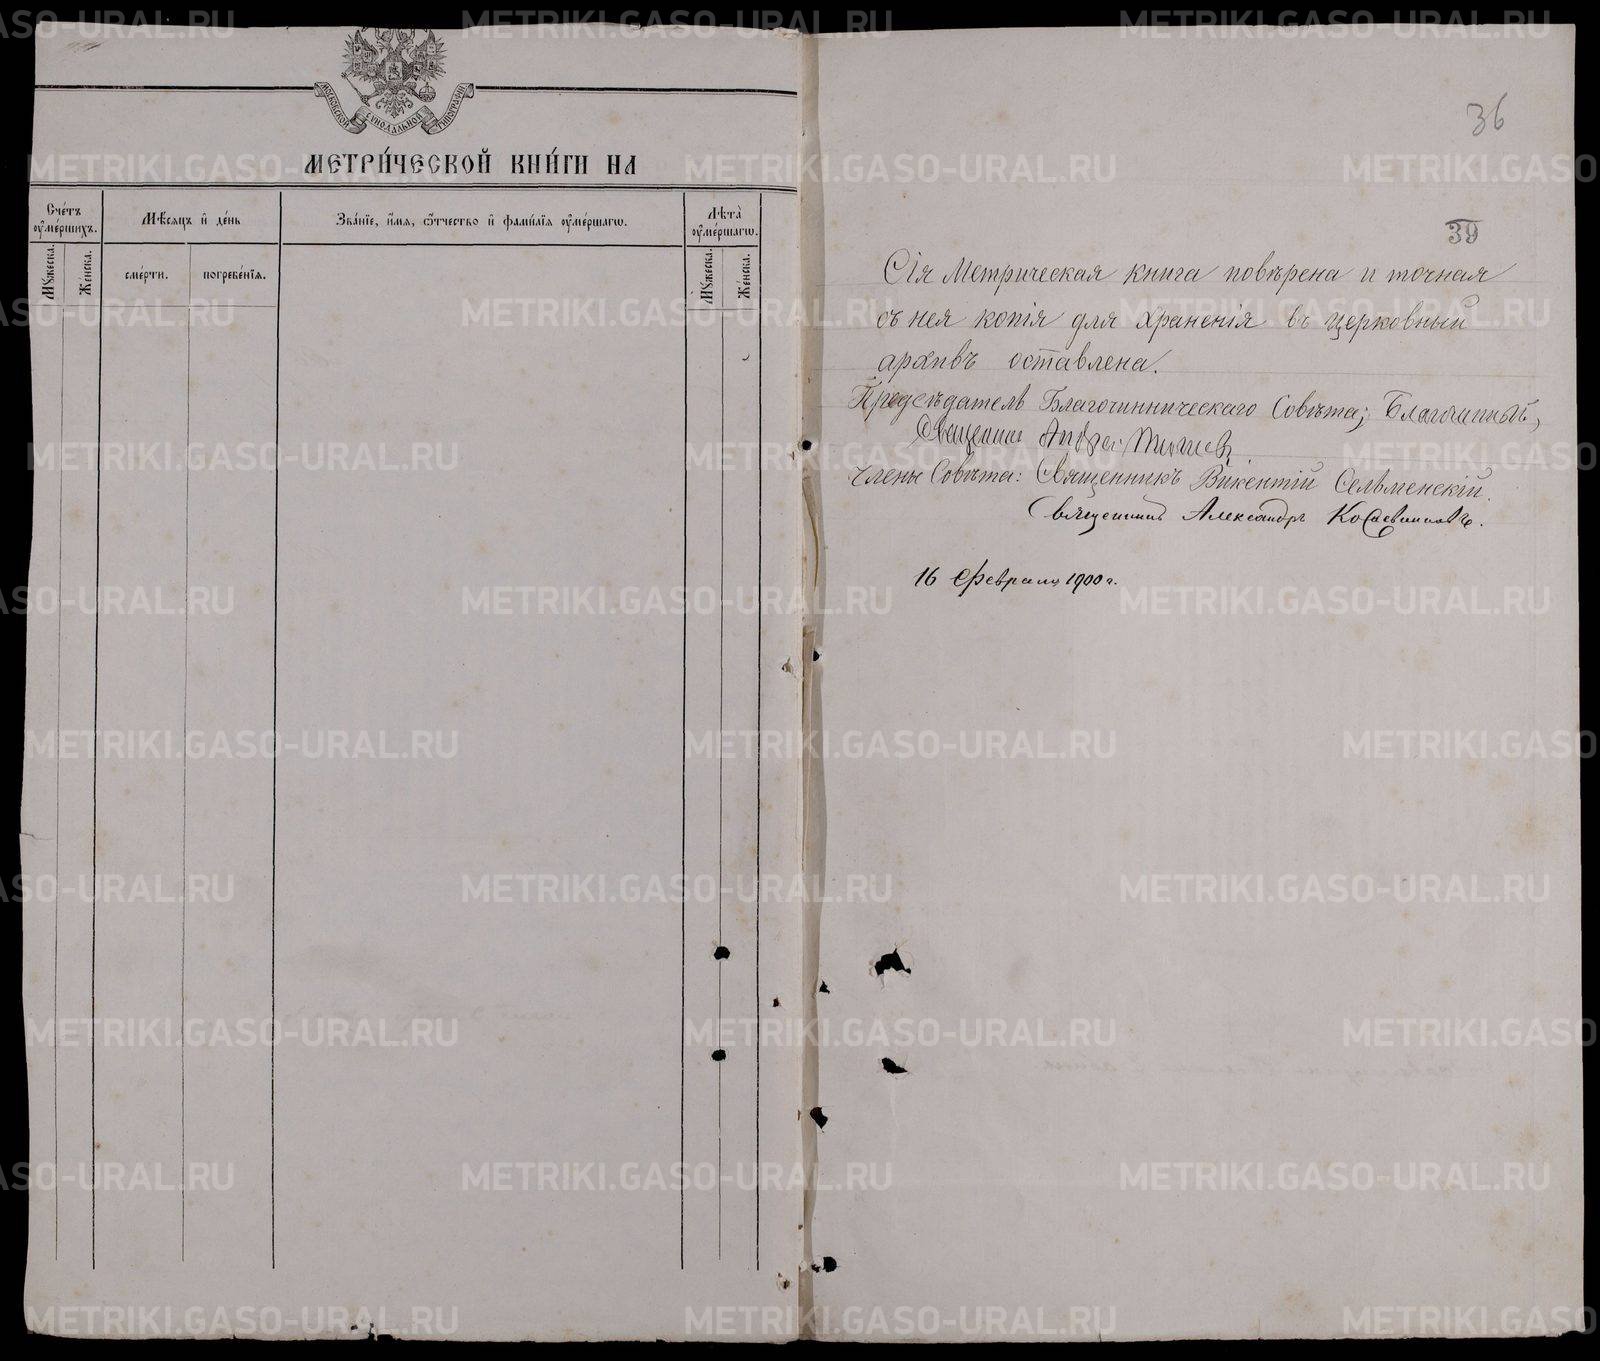 МОСКОВСКОЙ СѴНОДАЛЬНОЙ ТИПОГРАФІИ
МЕТРИ́ЧЕСКОЙ КНИ́ГИ НА
Сче́тъ оумершихъ.
Мѣсяцъ и҆ де́нь
Зва́нїе, и҆́мя, ѻ҆́тчество и҆ фами́лїя оу҆ме́ршагѡ.
Лѣта̀ оу҆ме́ршагѡ.
Мꙋжеска.
Же́нска.
сме́рти.
погребе́нїя.
Мꙋжеска.
Же́нска.
36
39
Сія Метрическая книга повѣрена и точная
съ нея копія для храненія въ церковный
архивъ оставлена.
Предсѣдатель Благочинническаго Совѣта; Благочинный,
Священник Андрей
Члены Совѣта: Священникъ Викентій Сельменскій.
Священникъ Александръ
16 февраля 1900 г.
METRIKI.GASO-URAL.RU